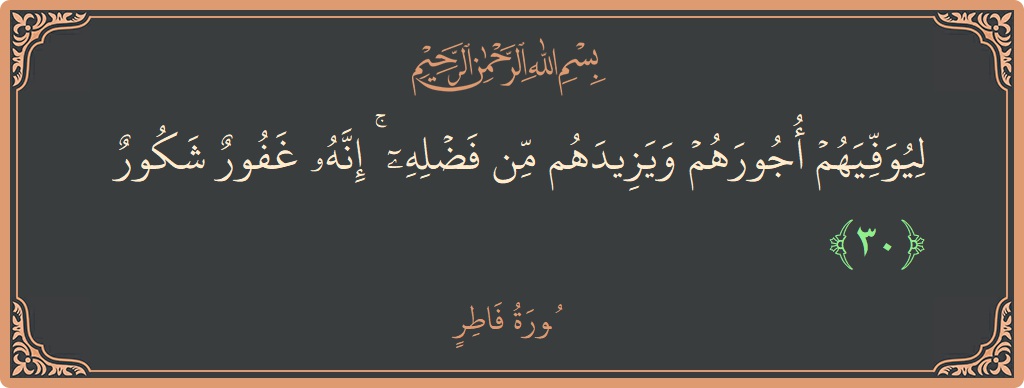 بِسْمِ اللَّهِ الرَّحْمَٰنِ الرَّحِيمِ
لِيُوَفِّيَهُمْ أُجُورَهُمْ وَيَزِيدَهُم مِّن فَضْلِهِۦٓ ۚ إِنَّهُۥ غَفُورٌ شَكُورٌ
﴿٣٠﴾
سُورَةُ فَاطِرٍ